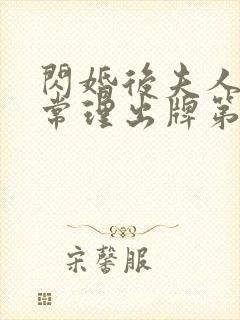 閃婚後夫人
常理出牌第
宋馨服